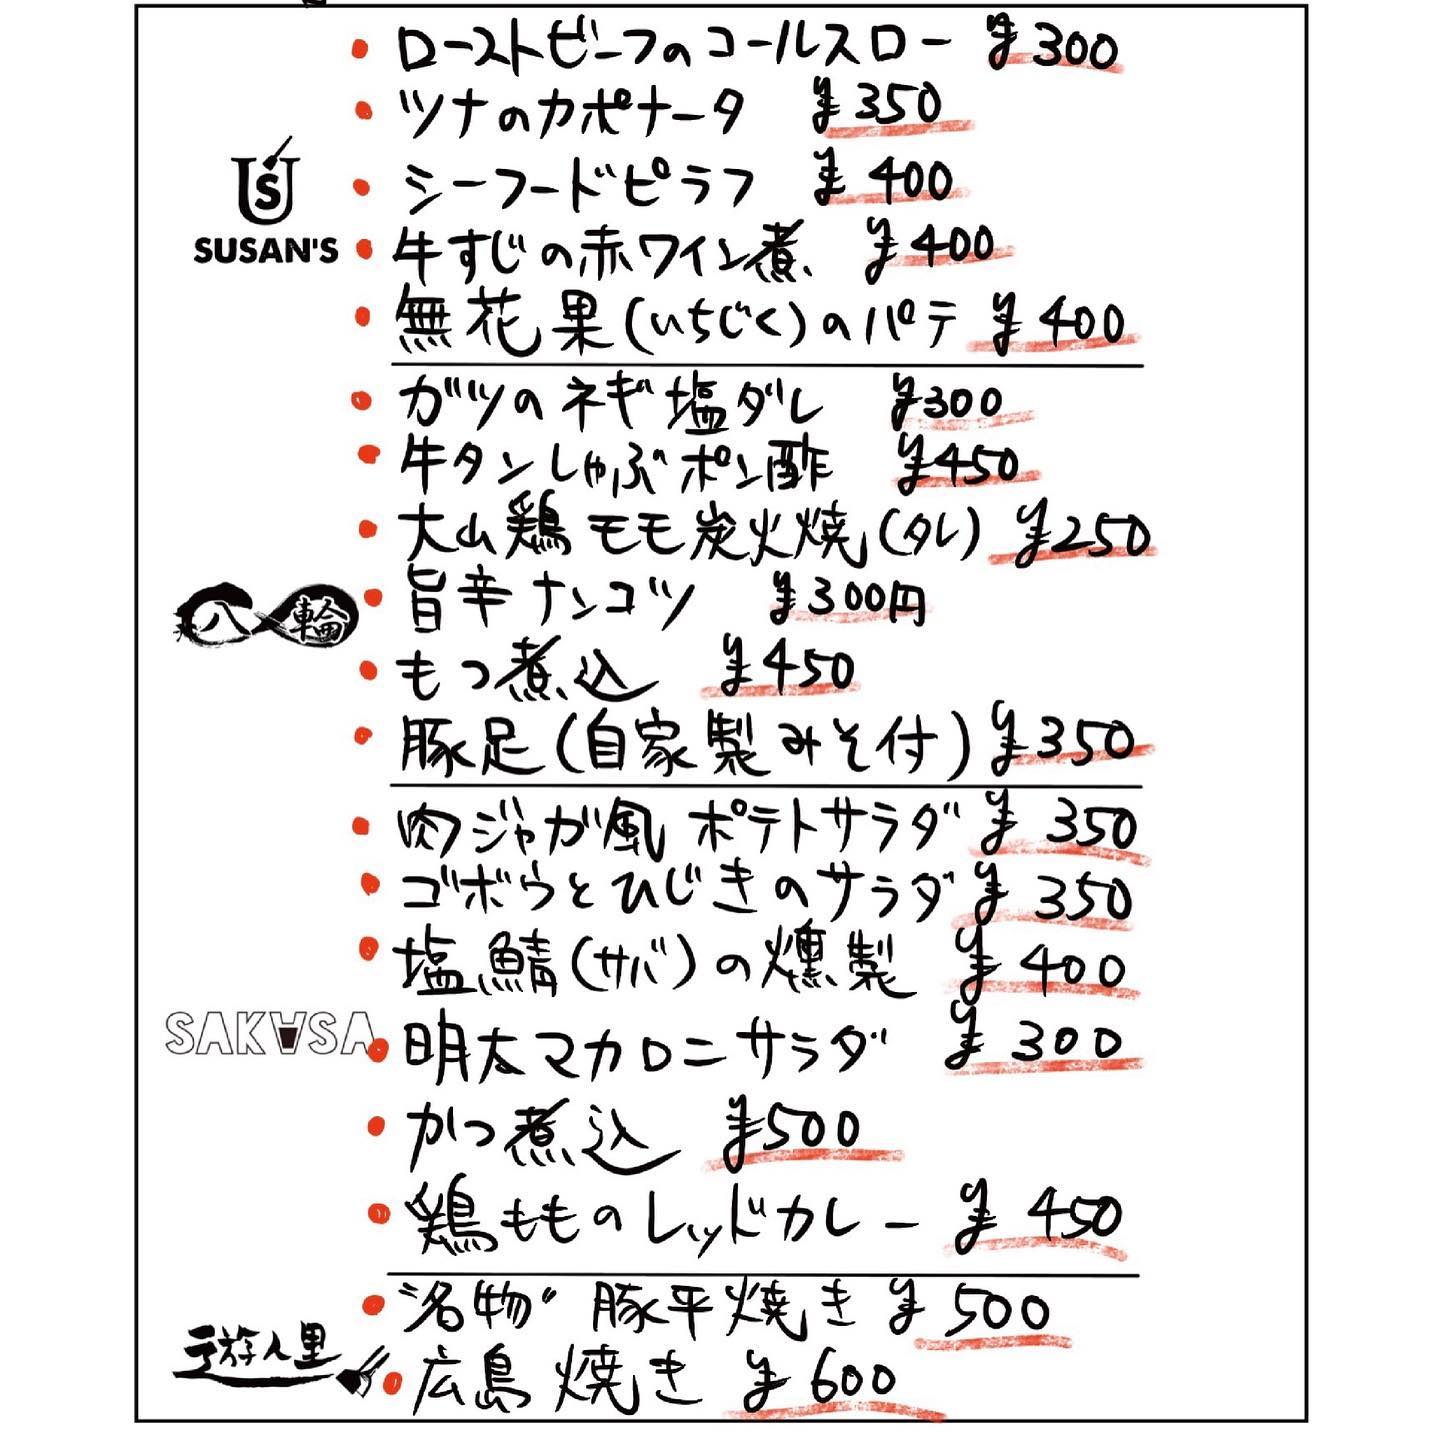 ・ローストビーフのコールスロー ¥300
・ツナのカポナータ ¥350
・シーフードピラフ ¥400
SUSAN'S
・牛すじの赤ワイン煮 ¥400
・無花果(いちじく)のパテ ¥400
・ガツのネギ塩ダレ ¥300
・牛タンしゃぶポン酢 ¥450
・大山鶏モモ炭火焼(タレ) ¥250
八輪
・旨辛ナンコツ ¥300円
・もつ煮込 ¥450
・豚足(自家製みそ付) ¥350
・肉ジャガ風ポテトサラダ ¥350
・ゴボウとひじきのサラダ ¥350
・塩鯖(サバ)の燻製 ¥400
SAKASA
・明太マカロニサラダ ¥300
・かつ煮込 ¥500
・鶏もものレッドカレー ¥450
・"名物"豚平焼き ¥500
遊人里
・広島焼き ¥600